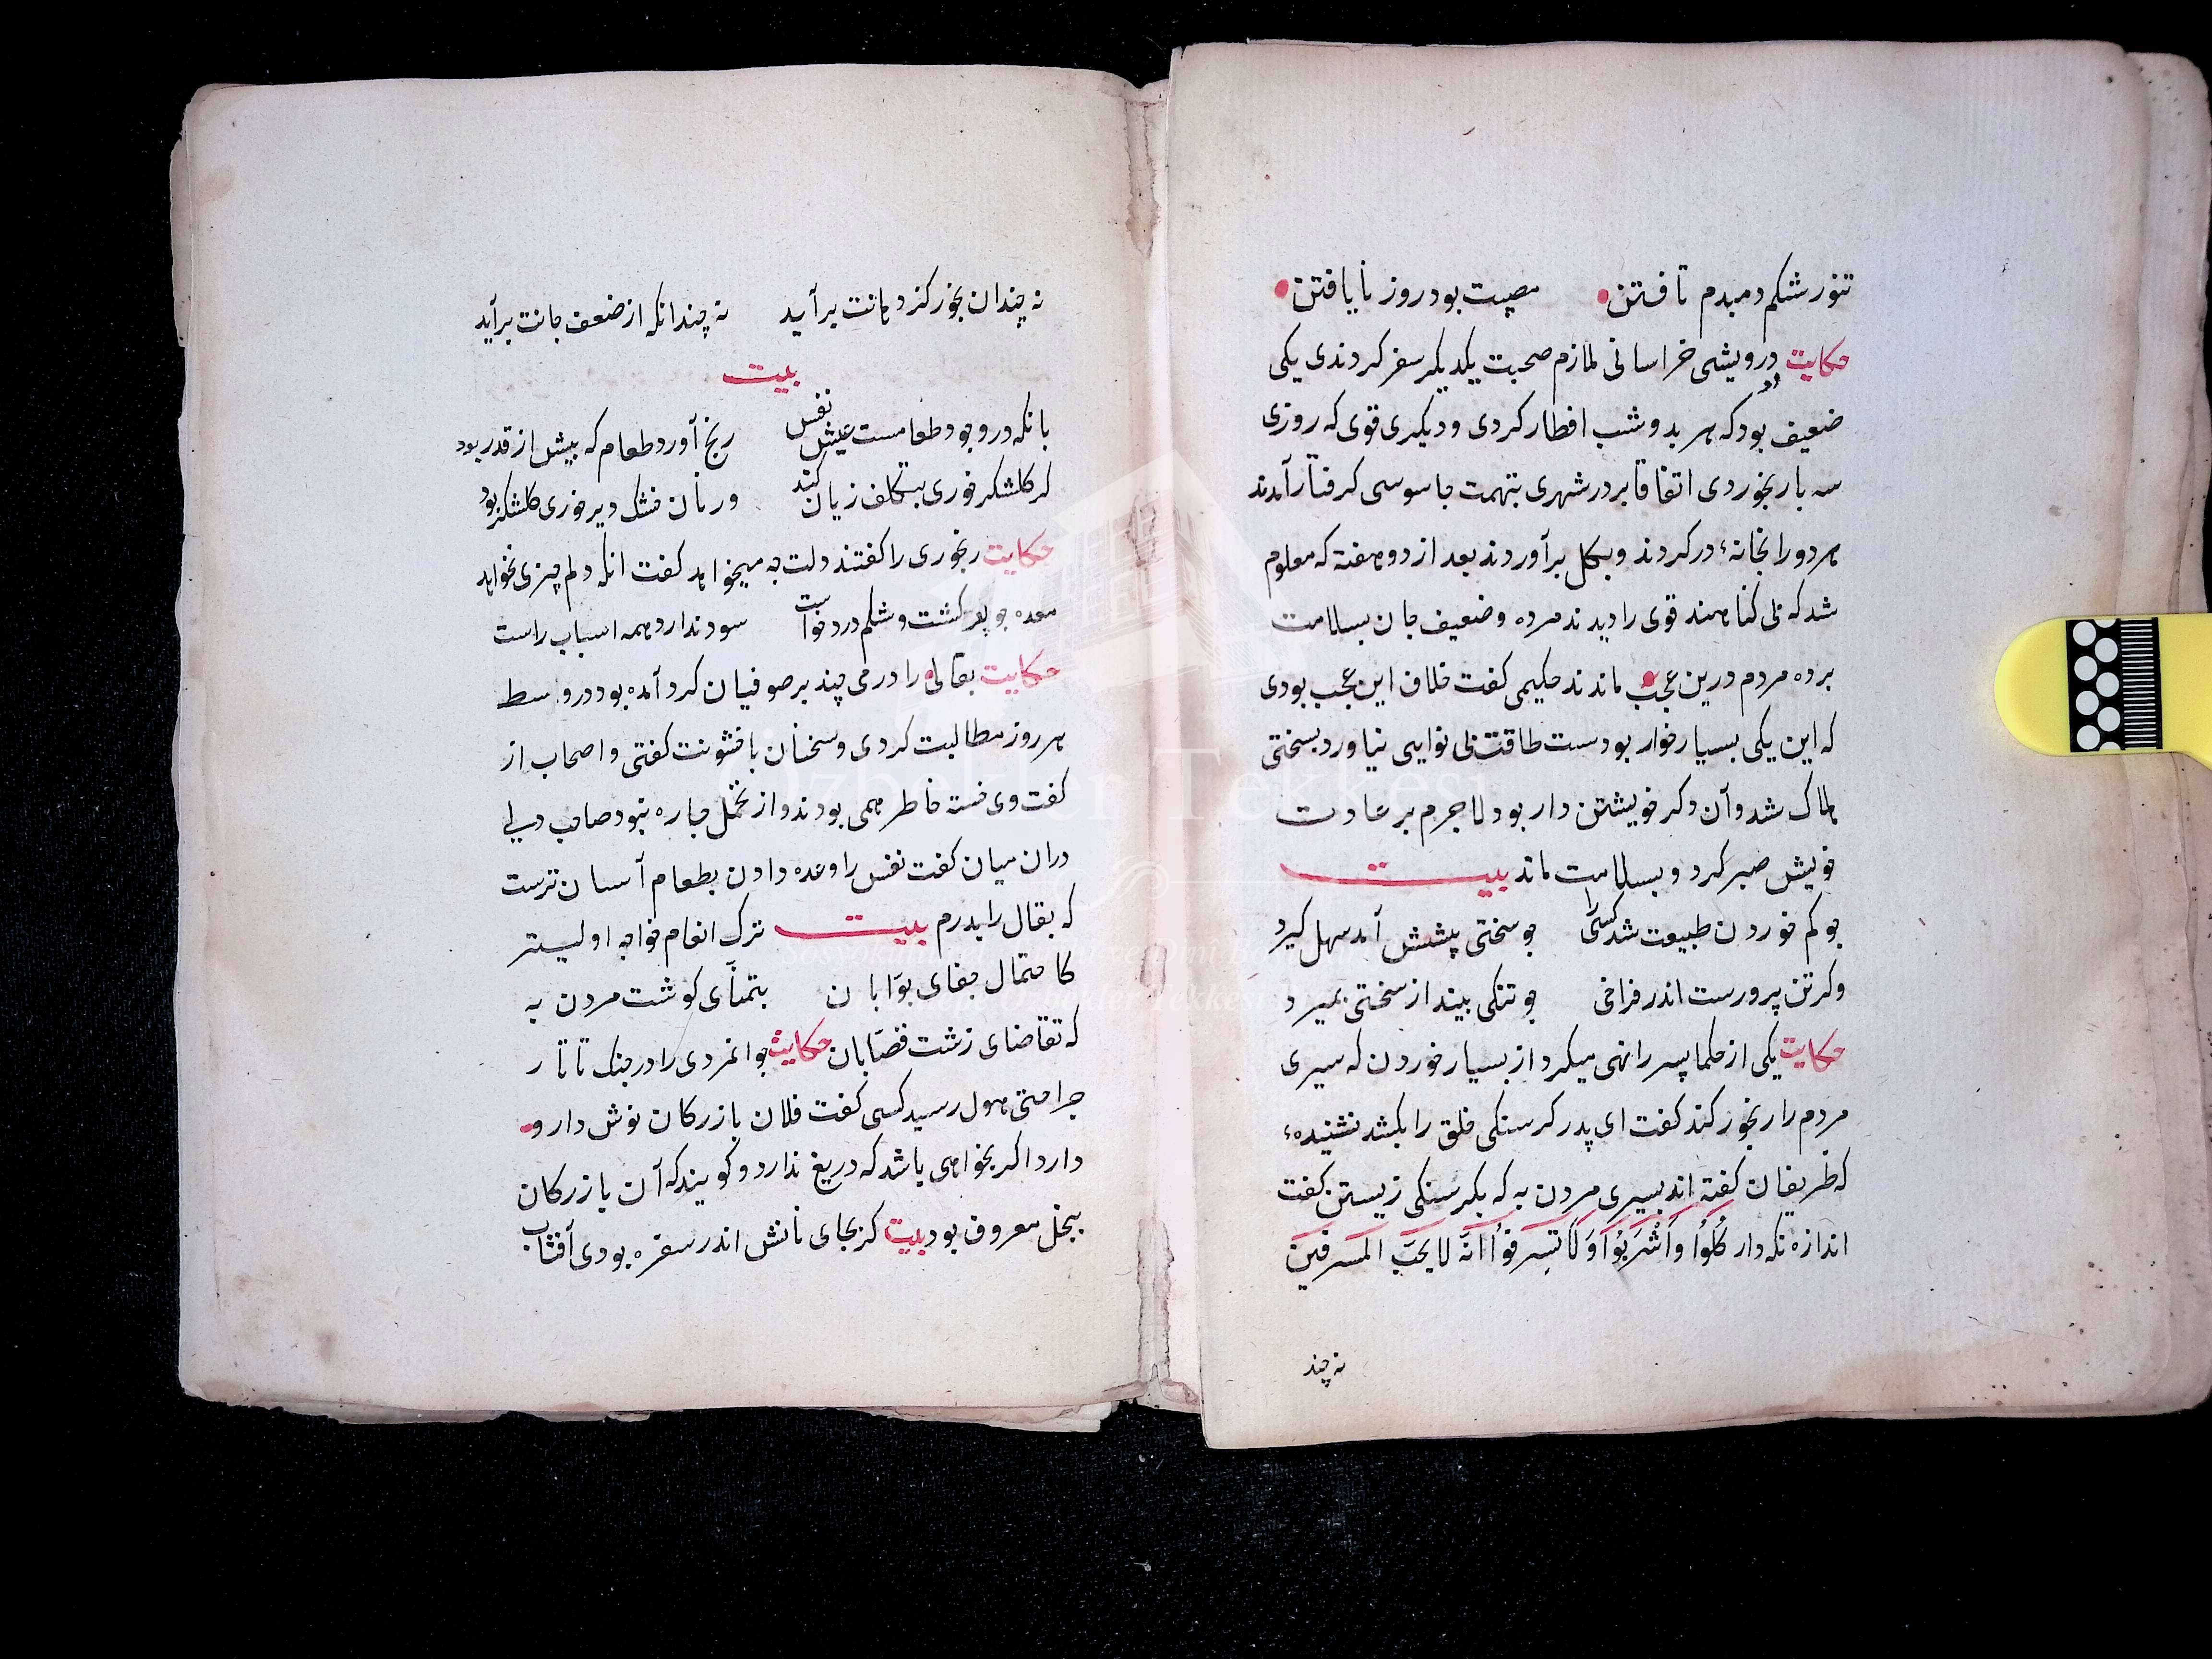 تنور شکم دمبدم تافتن مصیبت بود روز نایافتن
حکایت درویشی خراسانی ملازم صحبت یکدیکر سفر کردندی یکی
دو
ضعیف بود که بهر بدو شب افطار کردی و دیکری قوی که روزی
سه بار بخوردی اتفاقا بر در شهری بتهمت جاسوسی کرفتار آمدند
هر دو را بخانهٔ در کردند و بکل برآوردند بعد از دو هفته که معلوم
شد که بی کناهند قوی را دیدند مرده و ضعیف جان بسلامت
برده مردم درین عجب ماندند حکیمی کفت خلاف این عجب بودی
که این یکی بسیار خوار بودست طاقت بی نوایی نیاورد بسختی
هلاک شد و آن دکر خویشتن دار بود لاجرم بر عادت
خویش صبر کرد و بسلامت ماند بیت
جو کم خوردن طبیعت شد کسی را جو سختی پیشش آمد سهل کیرد
وکر تن پرورست اندر فراخی جو تنکی بیند از سختی بمیرد
حکایت یکی از حکما پسر را نهی میکرد از بسیار خوردن که سیری
مردم را رنجور کند کفت ای پدر کرسنکی خلق را بکشد نشنیدهٔ
که ظریفان کفته اند بسیری مردن به که بکرسنکی زیستن کفت
اندازه نکه دار کُلُوا وَاشْرَبُوا وَلَا تُسْرِفُوا انَّهُ لا یحبّ المسرفین
نه چند
نه چندان بخور کز دهانت برآید نه چندانکه از ضعف جانت برآید
بیت
بانکه در وجود طعامست عیش نفس رنج آورد طعام که بیش از قدر بود
کر کلشکر خوری بتکلف زیان کند ور نان خشک دیر خوری کلشکر بود
حکایت رنجوری را کفتند دلت چه میخواهد کفت انکه دلم چیزی نخواهد
معده جو پر کشت و شکم درد خواست سود ندارد همه اسباب راست
حکایت بقالی را درمی چند بر صوفیان کرد آمده بود در واسط
هر روز مطالبت کردی و سخنان باخشونت کفتی و اصحاب از
کفت وی خسته خاطر همی بودند و از تحمل چاره نبود صاحب دلی
دران میان کفت نفس را وعده دادن بطعام آسان ترست
که بقال را بدرم بیت ترک انعام خواجه اولیستر
کاحتمال جفای بوّابان بتمنّای کوشت مردن به
که تقاضای زشت قصّابان حکایت جوانمردی را در جنک تاتار
جراحتی هول رسید کسی کفت فلان بازرکان نوش دارو
دارد اکر بخواهی باشد که دریغ ندارد و کویند که آن بازرکان
ببخل معروف بود بیت کر بجای نانش اندر سفره بودی آفتاب